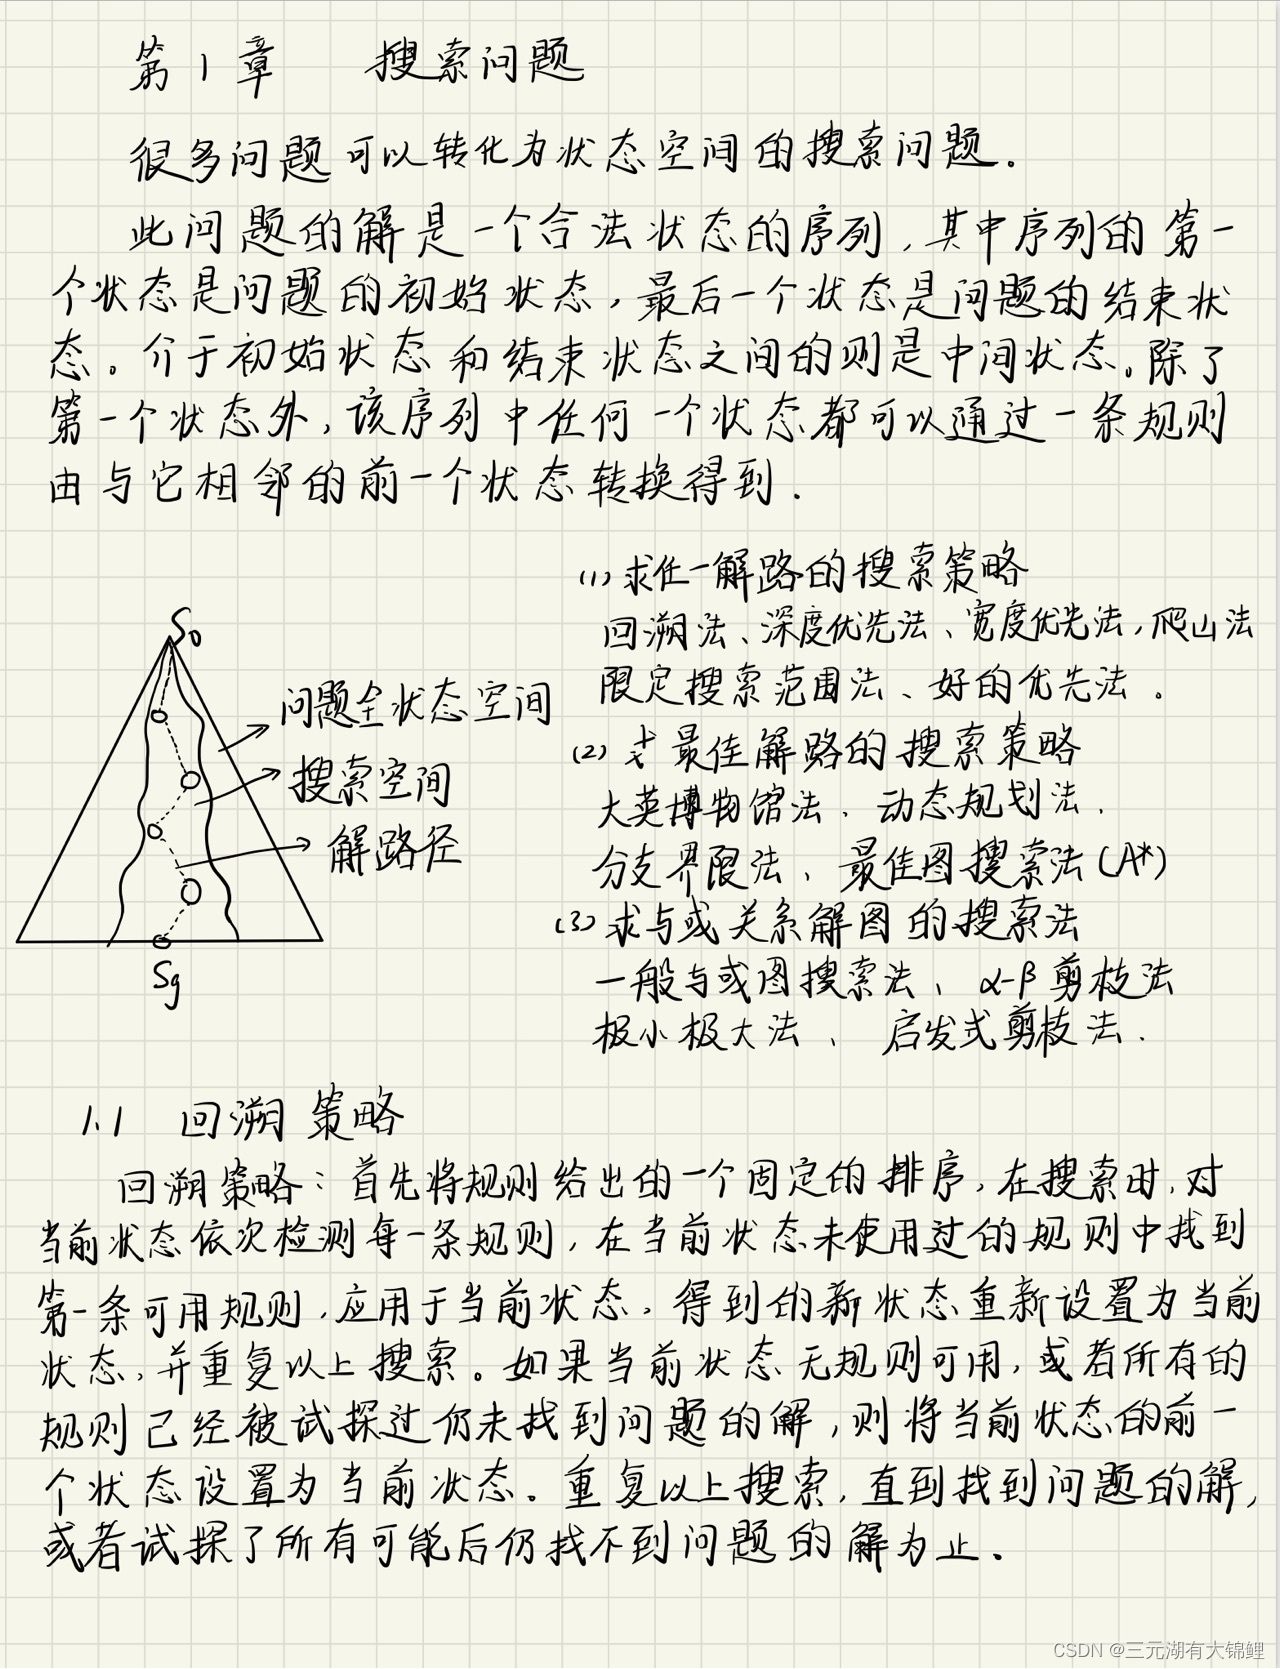 第1章 搜索问题
很多问题可以转化为状态空间的搜索问题.
此问题的解是一个合法状态的序列,其中序列的第一
个状态是问题的初始状态,最后一个状态是问题的结束状
态。介于初始状态和结束状态之间的则是中间状态。除了
第一个状态外,该序列中任何一个状态都可以通过一条规则
由与它相邻的前一个状态转换得到.
S0
问题全状态空间
搜索空间
解路径
Sg
(1)求任一解路的搜索策略
回溯法、深度优先法、宽度优先法,爬山法
限定搜索范围法、好的优先法。
(2)求最佳解路的搜索策略
大英博物馆法、动态规划法.
分支界限法、最佳图搜索法(A*)
(3)求与或关系解图的搜索法
一般与或图搜索法、α-β剪枝法
极小极大法、启发式剪枝法.
1.1 回溯策略
回溯策略:首先将规则给出的一个固定的排序,在搜索时,对
当前状态依次检测每一条规则,在当前状态未使用过的规则中找到
第一条可用规则,应用于当前状态,得到的新状态重新设置为当前
状态,并重复以上搜索。如果当前状态无规则可用,或者所有的
规则已经被试探过仍未找到问题的解,则将当前状态的前一
个状态设置为当前状态。重复以上搜索,直到找到问题的解,
或者试探了所有可能后仍找不到问题的解为止.
CSDN @三元湖有大锦鲤